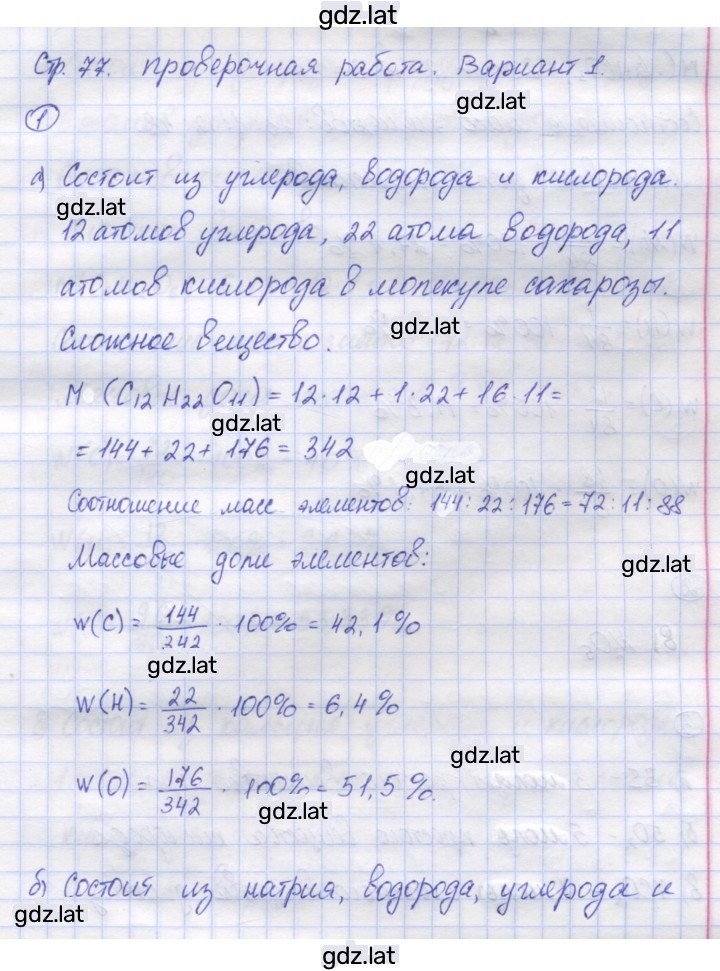 gdz.lat
Стр. 77. проверочная работа. Вариант 1.
gdz.lat
1
а) Состоит из углерода, водорода и кислорода.
gdz.lat
12 атомов углерода, 22 атома водорода, 11
атомов кислорода в молекуле сахарозы.
Сложное вещество.
gdz.lat
M (C12 H22 O11) = 12·12 + 1·22 + 16·11 =
gdz.lat
= 144 + 22 + 176 = 342
gdz.lat
Соотношение масс элементов: 144:22:176 = 72:11:88
Массовые доли элементов:
gdz.lat
w(C) = 144/342 · 100% = 42,1%
gdz.lat
w(H) = 22/342 · 100% = 6,4%
gdz.lat
w(O) = 176/342 · 100% = 51,5%.
gdz.lat
б) Состоит из натрия, водорода, углерода и
gdz.lat
gdz.lat